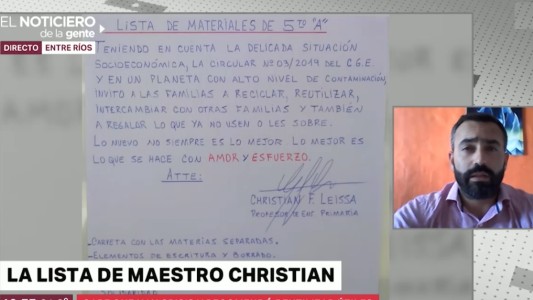 EL NOTICIERO
de la gente
DIRECTO ENTRE RÍOS
LISTA DE MATERIALES DE 5TO "A"
TENIENDO EN CUENTA LA DELICADA SITUACIÓN
SOCIOECONÓMICA, LA CIRCULAR Nº 03/2019 DEL C.G.E.
Y EN UN PLANETA CON ALTO NIVEL DE CONTAMINACIÓN,
INVITO A LAS FAMILIAS A RECICLAR, REUTILIZAR,
INTERCAMBIAR CON OTRAS FAMILIAS Y TAMBIÉN
A REGALAR LO QUE YA NO USEN O LES SOBRE.
LO NUEVO NO SIEMPRE ES LO MEJOR. LO MEJOR ES
LO QUE SE HACE CON AMOR Y ESFUERZO.
ATTE:
CHRISTIAN F. LEISSA
PROFESOR DE ENS. PRIMARIA
- CARPETA CON LAS MATERIAS SEPARADAS.
- ELEMENTOS DE ESCRITURA Y BORRADO.
LA LISTA DE MAESTRO CHRISTIAN